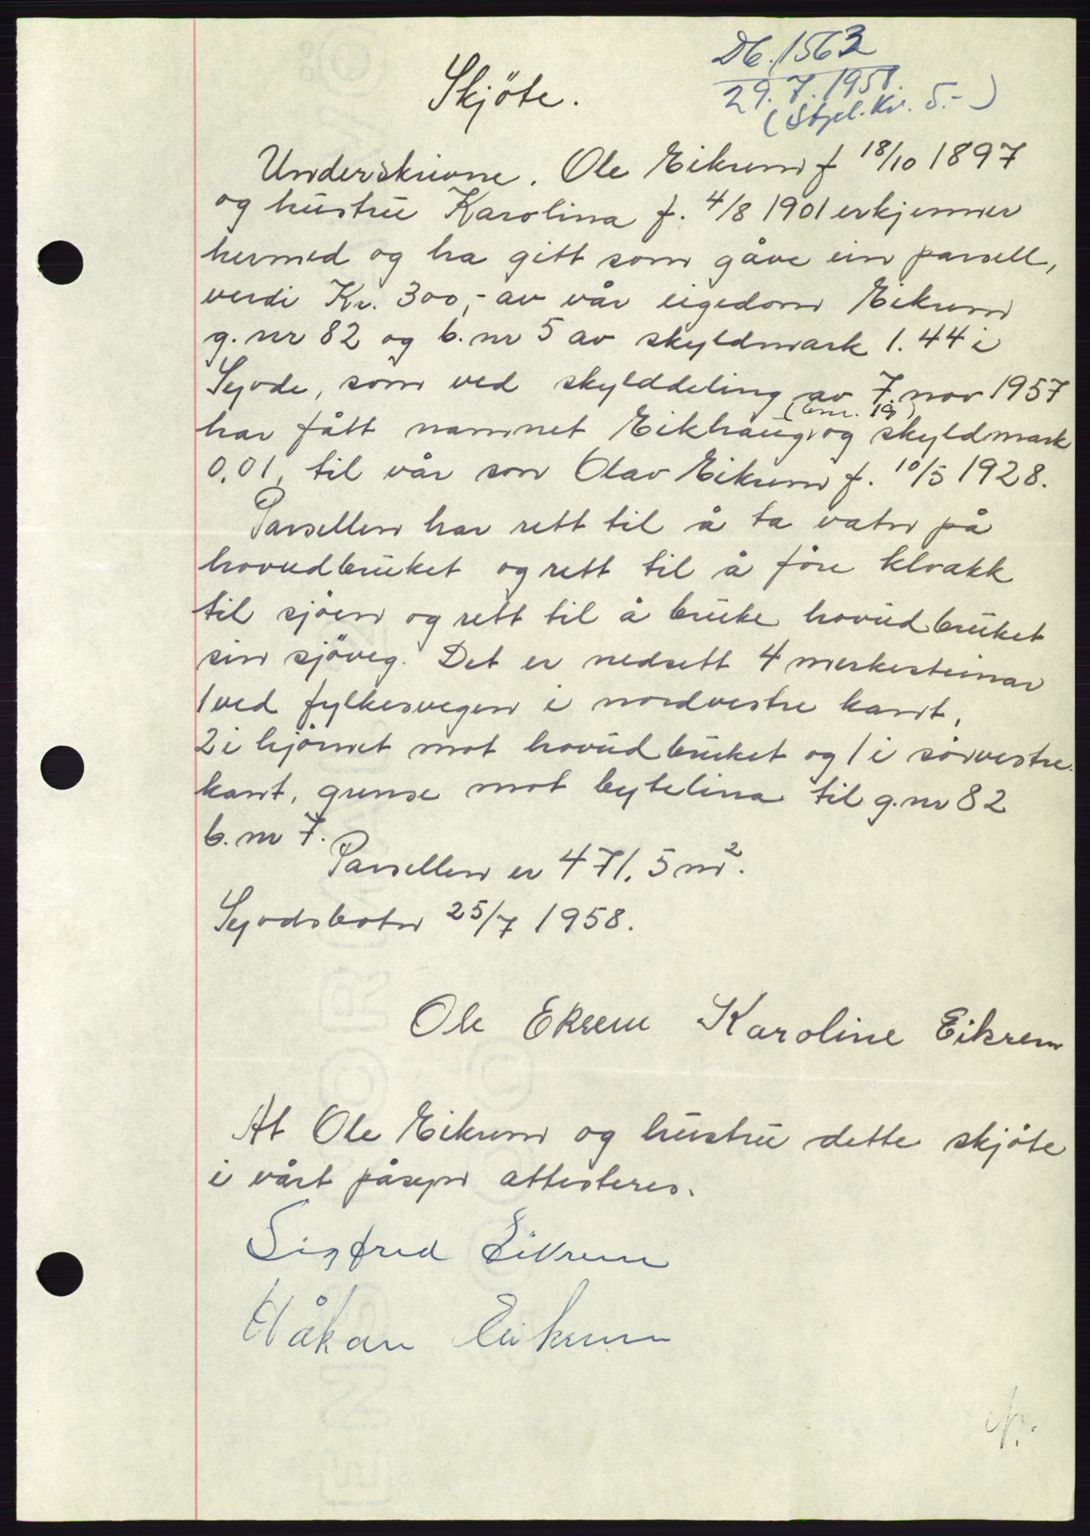 Db. 1563
29. 7. 1958.
(Stpl. Kr. 5.-)
Skjöte.
Underskrivne. Ole Eikrem f 18/10 1897
og hustru Karolina f. 4/8 1901 erkjenner
hermed og ha gitt som gåve ein parsell,
verdi Kr. 300,- av vår eigedom Eikrem
g.nr 82 og b.nr 5 av skyldmark 1.44 i
Syvde, som ved skylddeling av 7. nov 1957
(bnr. 19)
har fått namnet Eikhaug og skyldmark
0,01, til vår son Olav Eikrem f. 10/5 1928.
Parsellen har rett til å ta vatn på
hovudbruket og rett til å före kloakk
til sjöen og rett til å bruke hovudbruket
sin sjöveg. Det er nedsett 4 merkesteinar
1 ved fylkesvegen i nordvestre kant,
2 i hjörnet mot hovudbruket og 1 i sörvestre
kant, grense mot bytelina til g.nr 82
b.nr 7.
Parsellen er 471.5 m².
Syvdsbotn 25/7 1958.
Ole Ekrem Karoline Eikrem
At Ole Eikrem og hustru dette skjöte
i vårt påsyn attesteres.
Sigfred Eikrem
Håkan Eikrem